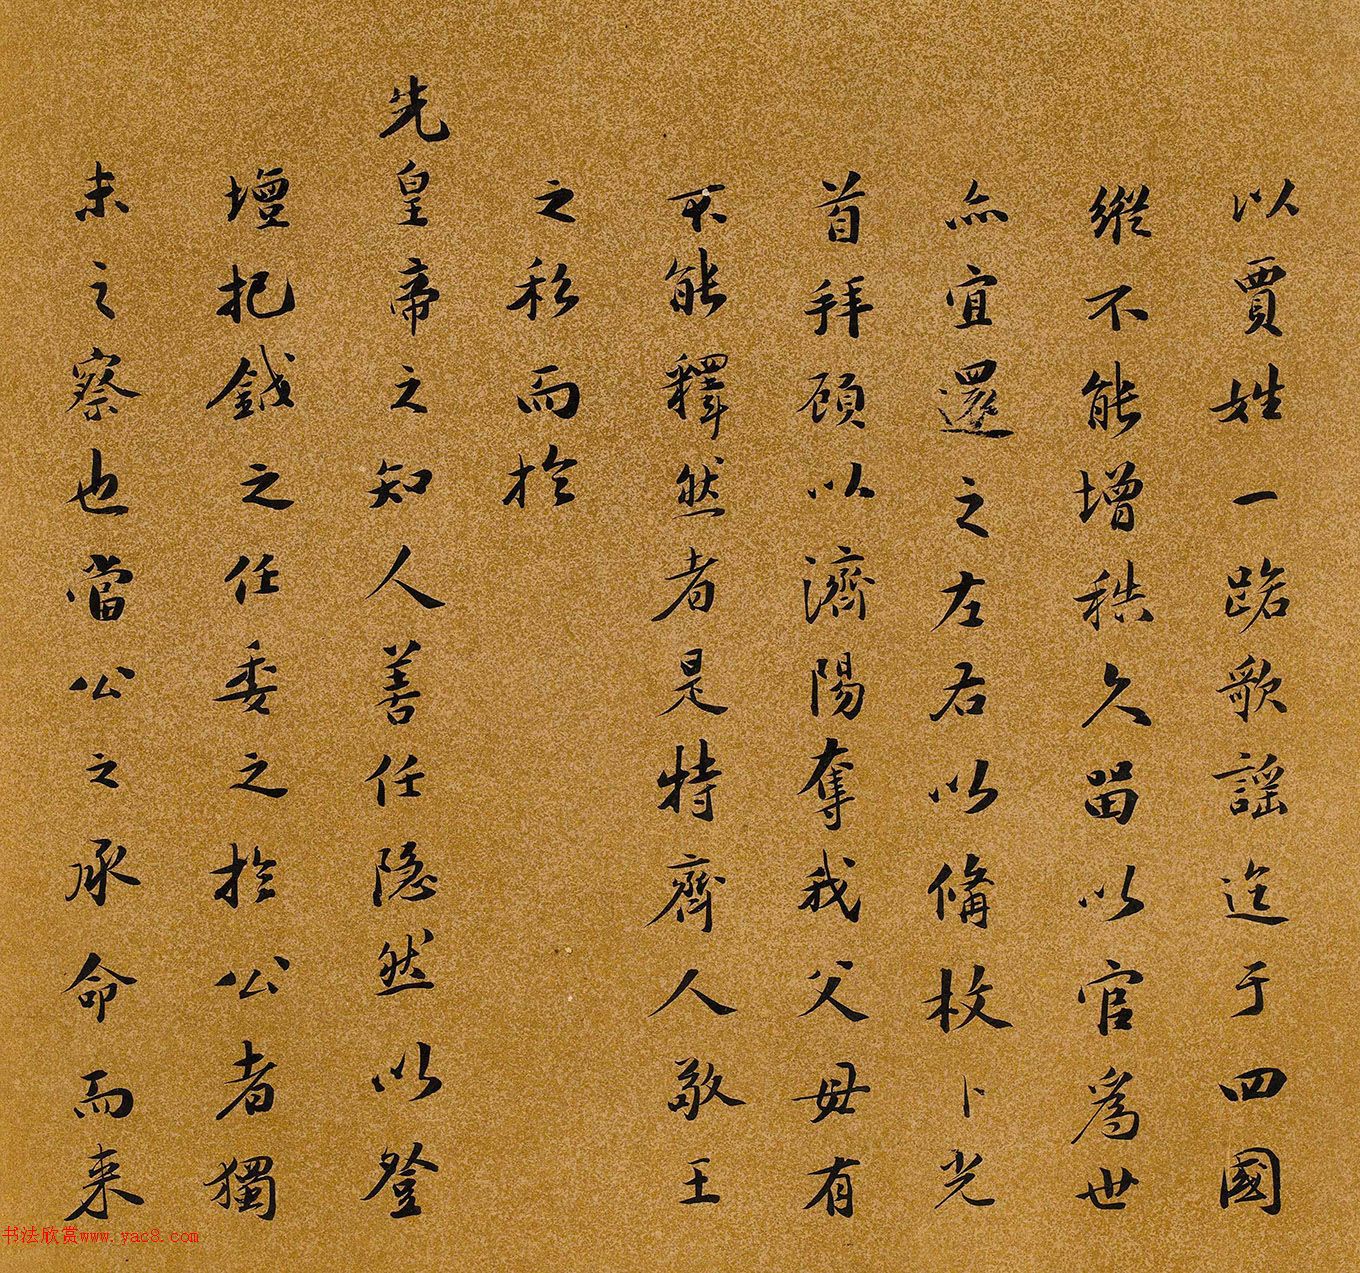 以賈姓一路歌謡迄于四國
縱不能増秩久留以官為世
亦宜還之左右以備枚卜光
首拜顧以濟陽奪我父母有
不能釋然者是特齊人敬王
之私而於
先皇帝之知人善任隐然以登
壇把鉞之任委之於公者獨
未之察也當公之承命而来
书法欣赏www.yac8.com